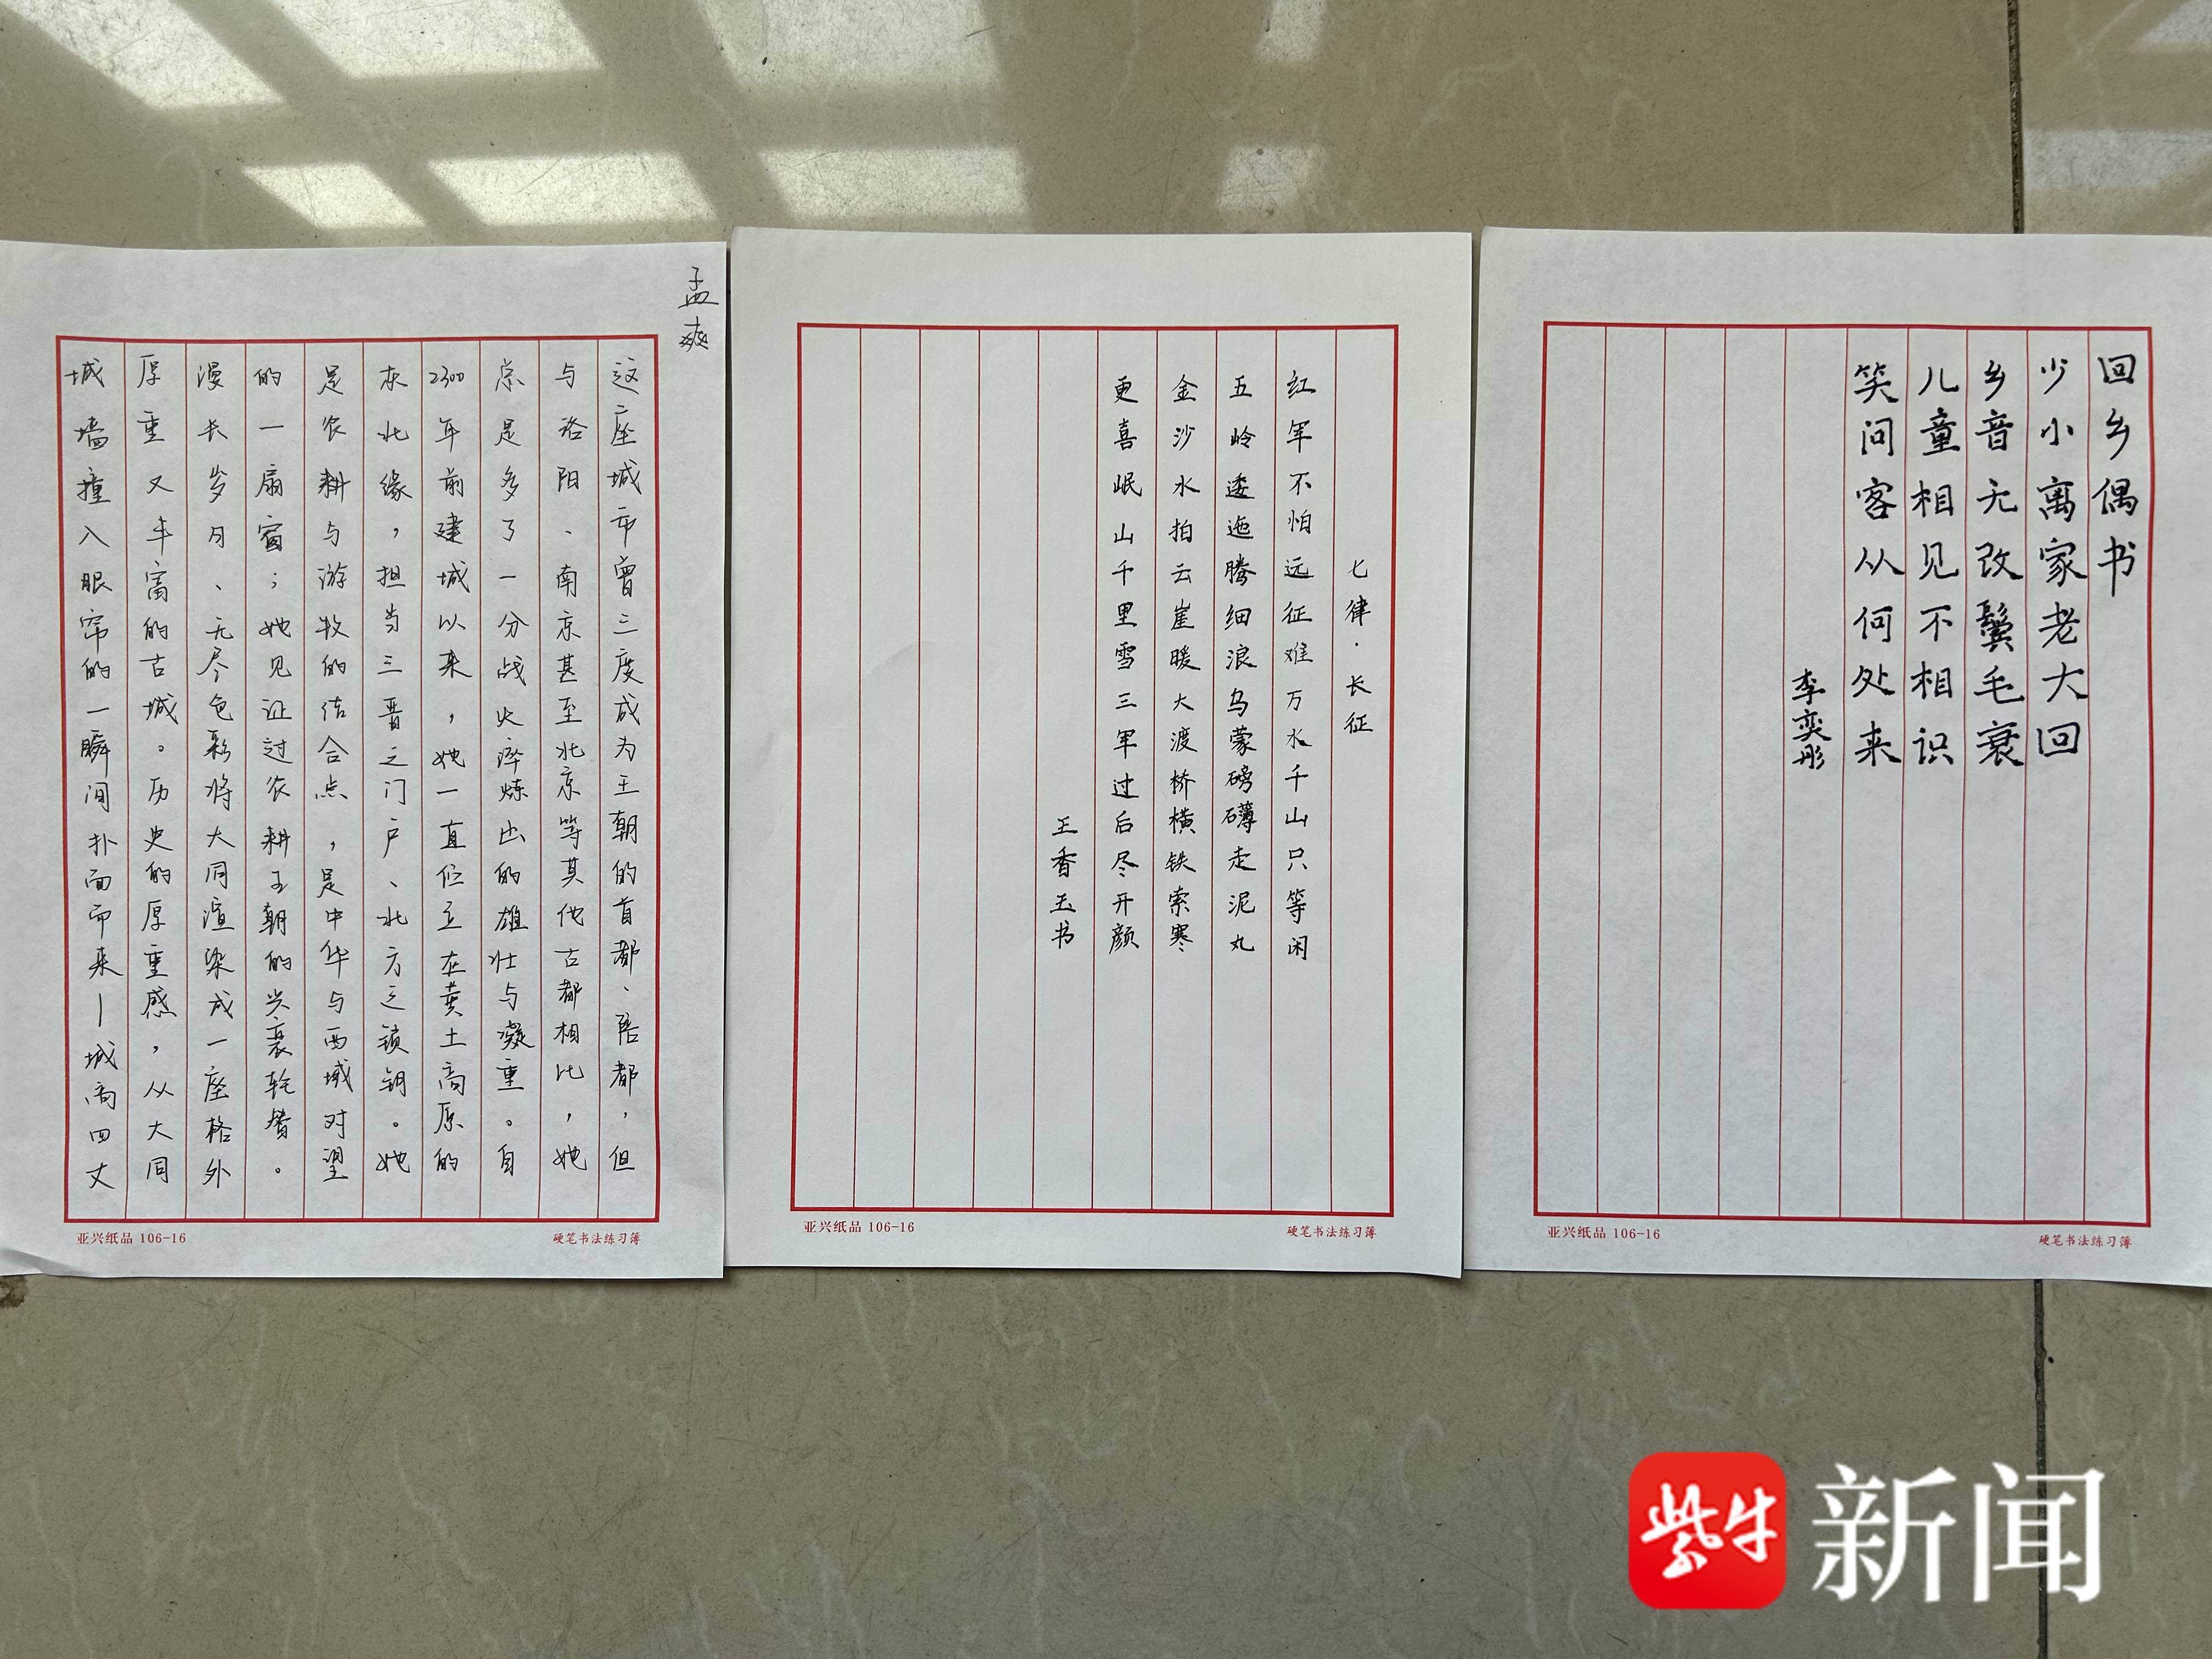 孟爽
这座城市曾三度成为王朝的首都、陪都，但
与洛阳、南京甚至北京等其他古都相比，她
总是多了一分战火淬炼出的雄壮与凝重。自
2300年前建城以来，她一直伫立在黄土高原的
东北缘，担当三晋之门户、北方之锁钥。她
是农耕与游牧的结合点，是中华与西域对望
的一扇窗；她见证过农耕王朝的兴衰轮替。
漫长岁月、无尽色彩将大同渲染成一座格外
厚重又丰富的古城。历史的厚重感，从大同
城墙撞入眼帘的一瞬间扑面而来—城高四丈
亚兴纸品 106-16
硬笔书法练习簿
七律·长征
红军不怕远征难万水千山只等闲
五岭逶迤腾细浪乌蒙磅礴走泥丸
金沙水拍云崖暖大渡桥横铁索寒
更喜岷山千里雪三军过后尽开颜
王香玉书
亚兴纸品 106-16
硬笔书法练习簿
回乡偶书
少小离家老大回
乡音无改鬓毛衰
儿童相见不相识
笑问客从何处来
李奕彤
亚兴纸品 106-16
硬笔书法练习簿
紫牛
新闻